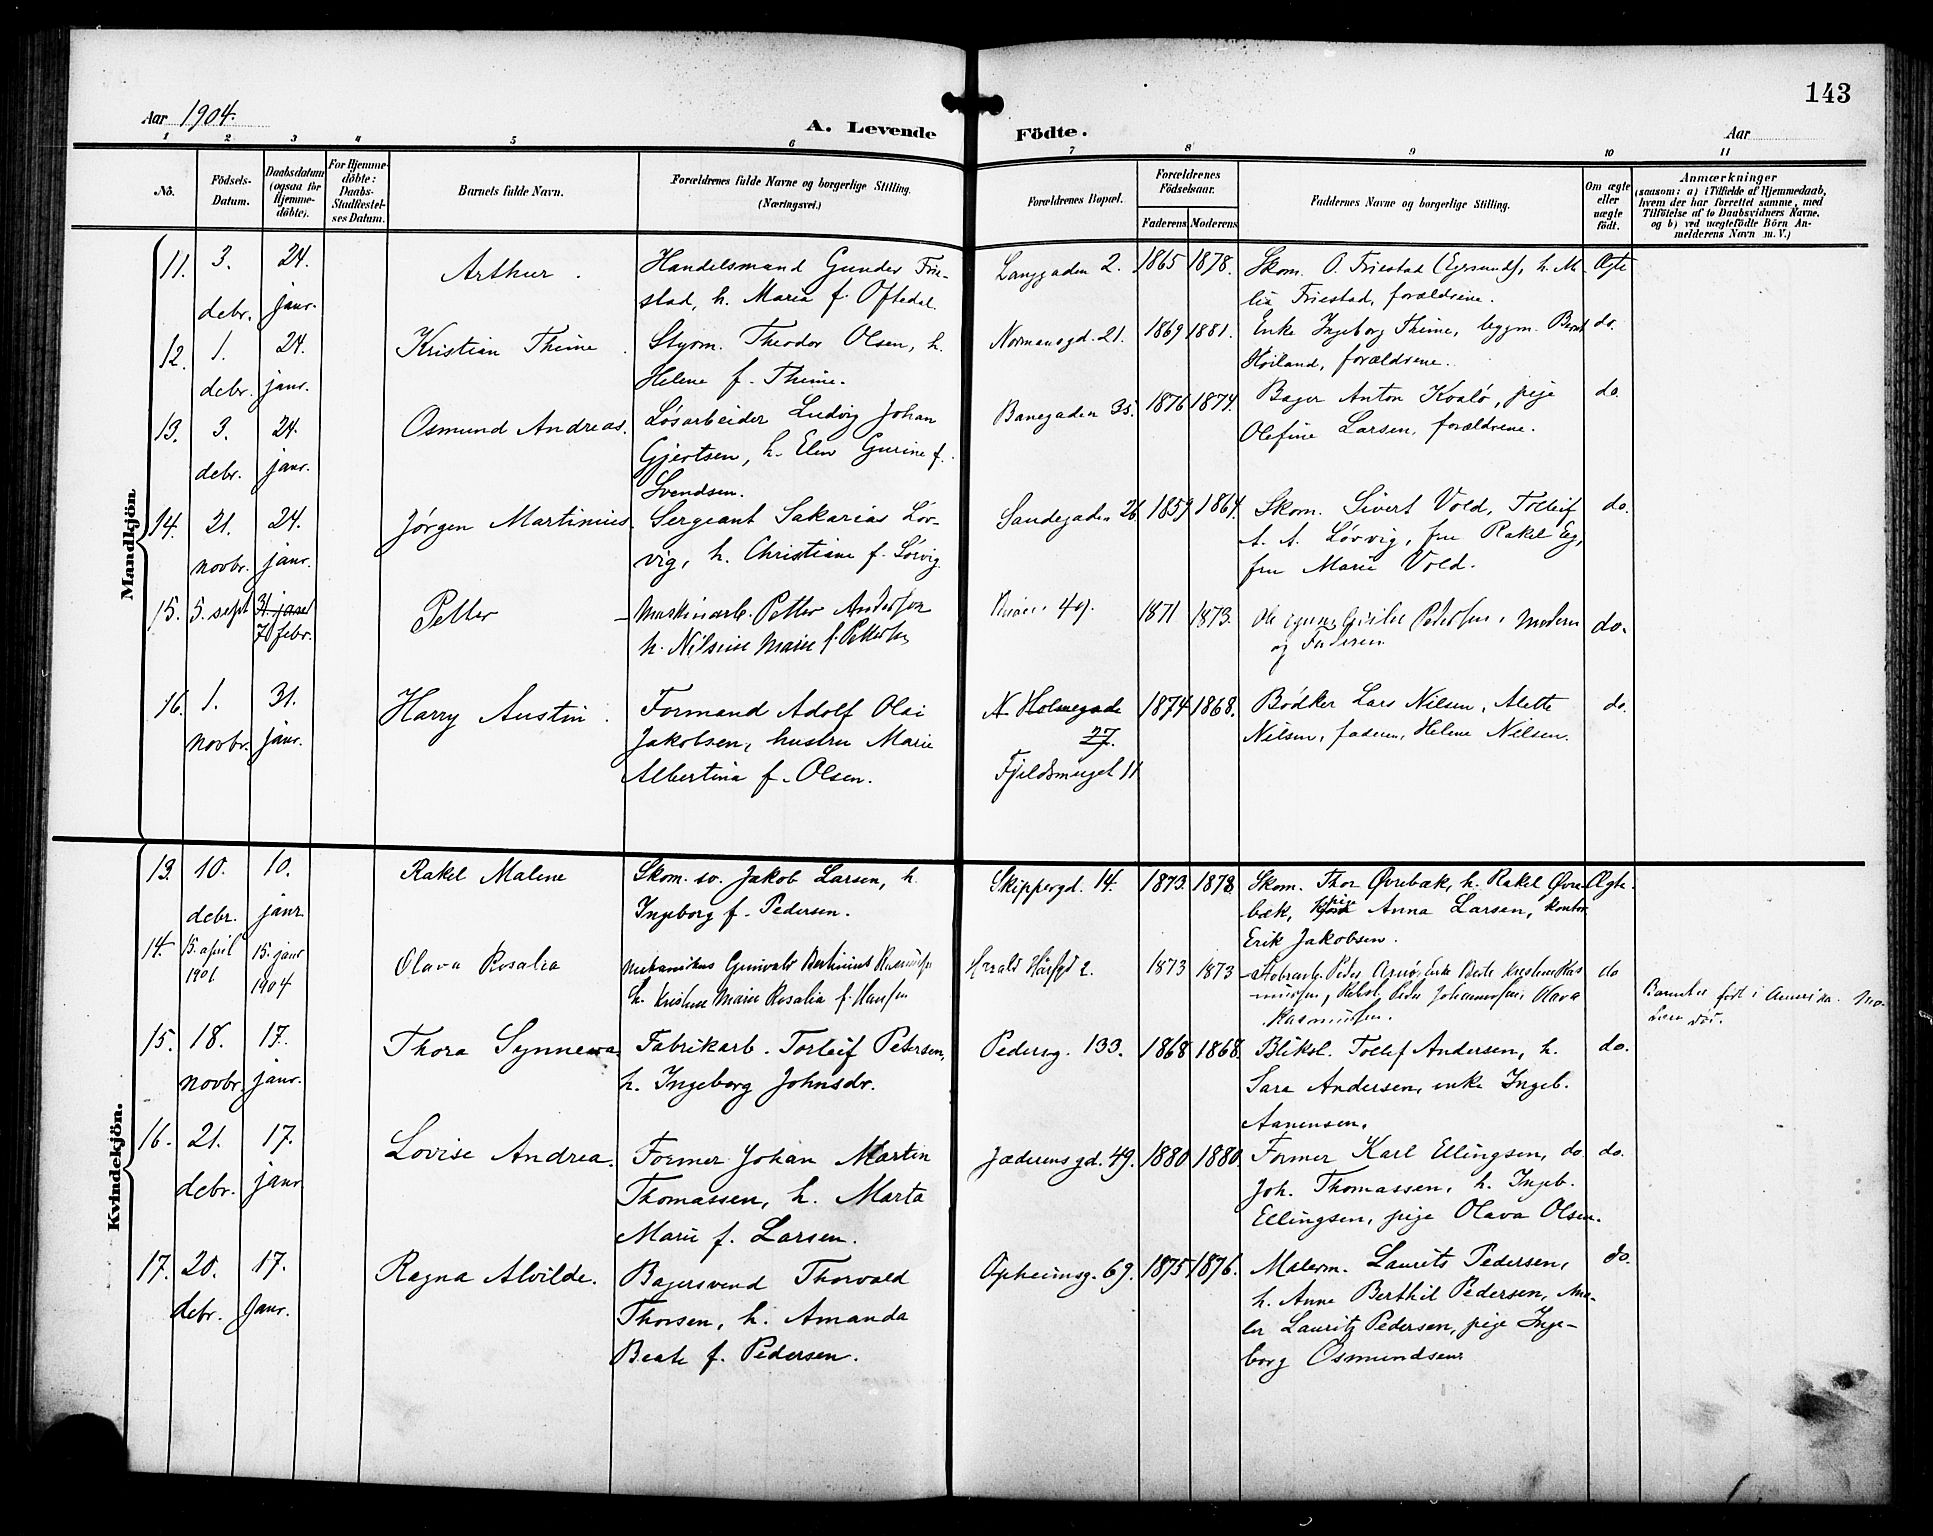 143
Aar 1904.
A. Levende Födte.
Aar
1 2 3 4 5 6 7 8 9 10 11
No. Födsels-Datum. Daabsdatum (ogsaa for Hjemme-döbte). For Hjemme-döbte: Daabs-Stadfæstel-ses Datum. Barnets fulde Navn. Forældrenes fulde Navne og borgerlige Stilling. (Næringsvei.) Forældrenes Bopæl. Forældrenes Fødselsaar. Faderens Moderens Faddernes Navne og borgerlige Stilling. Om ægte eller uægte født. Anmærkninger (saasom: a) i Tilfælde af Hjemmedaab, hvem der har forrettet samme, med Tilföielse af to Daabsvidners Navne, og b) ved uægtefödte Börn An-melderens Navn m. V.)
Mandkjön
11. 3. 24. Arthur. Handelsmand Gunder Frie- Langgaden 2. 1865 1878. Skom. O. Friestad (Egersund), h. M Ægte
debr. janr. stad, h. Maria f. Oftedal lia Friestad, forældrene.
12. 1. 24. Kristian Thime. Styrm. Theodor Olsen, h. Normansgd. 21. 1869 1881. Enke Ingeborg Thime, leggm. Bernt do.
debr. janr. Helene f. Thime. Høiland, forældrene.
13. 3. 24. Osmund Andreas. Løsarbeider Ludvig Johan Banegaden 35. 1876 1874. Bager Anton Kvalø, pige do.
debr. janr. Gjertsen, h. Elen Gurine f. Olefine Larsen, forældrene.
Svendsen.
14. 21. 24. Jørgen Martinius. Sergeant Sakarias Lør- Sandegaden 26 1859 1864. Skom. Sivert Vold, Tolleif do.
novbr. janr. vig, h. Christiane f. Lørvig A. A. Lørvig, fru Rakel Eg,
fru Marie Vold.
15. 5. sept 31. janr Petter Maskinarb. Petter Andersen 49. 1871 1873. Pedersen, Moderen do.
7 febr. h. Nilsine Marie f. Pettersen og Faderen
16. 1. 31. Harry Austin. Formand Adolf Olai N. Holmegade 1874 1868. Bødker Lars Nilsen, Alette do.
novbr. janr. Jakobsen, hustru Marie 27. Nilsen, faderen, Helene Nilsen.
Albertina f. Olsen. Fjeldsmuget 11
Kvindekjön.
13. 10. 10. Rakel Malene Skom. sv. Jakob Larsen, h. Skippergd. 14. 1873. 1878. Skom. Thor Øvrebæk, h. Rakel Øvre- Ægte.
debr. janr. Ingeborg f. Pedersen. bæk, pige Anna Larsen, kontor
Erik Jakobsen.
14. 15. april 15. janr Olava Rosalia Mekanikus Gunvald Bertinius Rasmussen Harald Hårfgd 2. 1873 1873 Peder Arnø, Enke Berte Kristine Ras do
1901 1904 h. Kristine Marie Rosalia f. Hansen mussen, Peder Johannessen, Olava Barnet er født i Amerika. Mo-
Rasmussen. deren død.
15. 18. 17. Thora Synneva Fabrikarb. Torleif Petersen, Pedersg. 133. 1868 1868. Bliksl. Tollef Andersen, h. do.
novbr. janr. h. Ingeborg Johnsdr. Sara Andersen, enke Ingeb.
Aanensen.
16. 21. 17. Lovise Andrea. Former Johan Martin Jæderensgd. 49. 1880 1880. Former Karl Ellingsen, do. do.
debr. janr Thomassen, h. Marta Joh. Thomassen, h. Ingeb.
Marie f. Larsen. Ellingsen, pige Olava Olsen.
17. 20. 17. Ragna Alvilde. Bagersvend Thorvald Opheimsg. 69. 1875 1876. Malerm. Laurits Pedersen, do.
debr. janr. Thorsen, h. Amanda h. Anne Berthil Pedersen, Ma-
Beate f. Pedersen. ler Lauritz Pedersen, pige Inge-
borg Osmundsen.